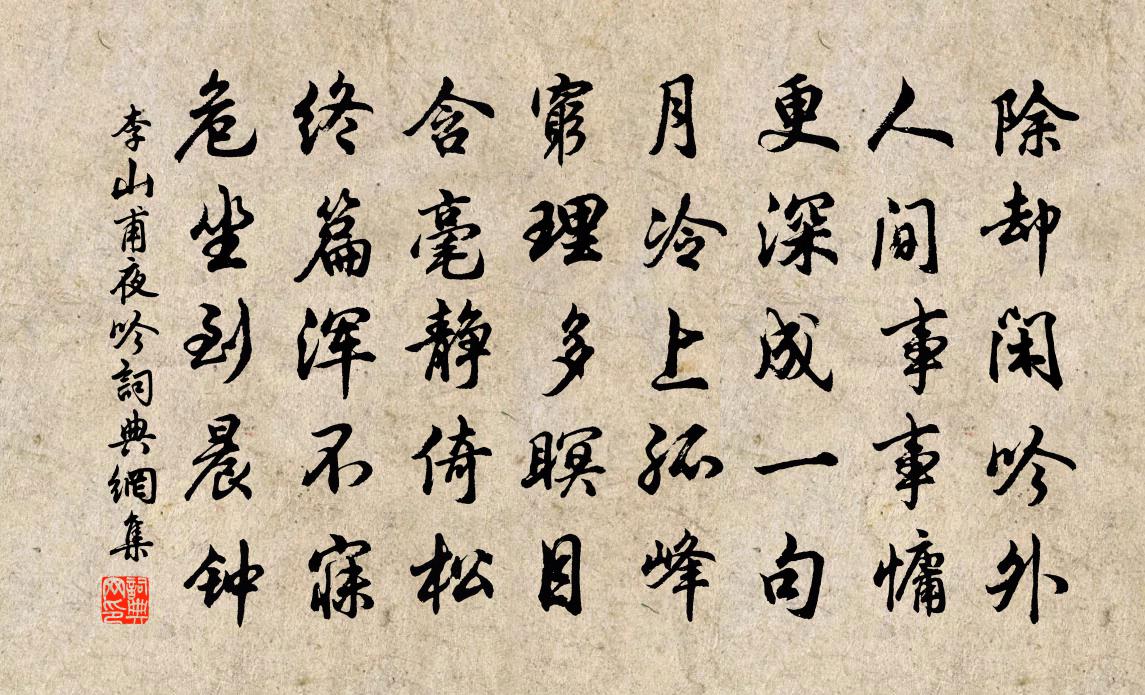 除却闲吟外
人间事事慵
更深成一句
月冷上孤峰
窮理多瞑目
含毫静倚松
终篇浑不寐
危坐到晨钟
李山甫夜吟詞典網集
詞典
网印